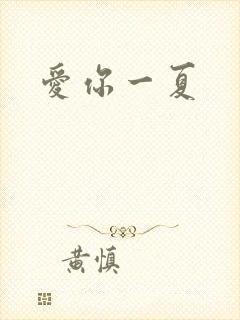 愛你一夏
黄慎